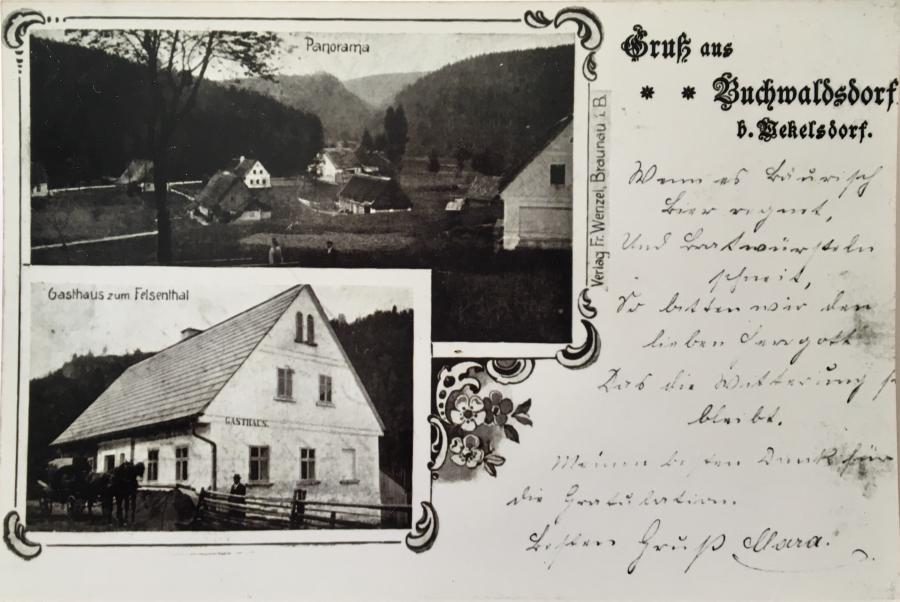 Panorama
Gruß aus
Buchwaldsdorf
b. Wekelsdorf.
Verlag Fr. Wenzel, Braunau i. B.
Gasthaus zum Felsenthal
GASTHAUS.
Wenn es bäurisch
Bier regnet,
Und Bratwürsteln
schneit,
So bitten wir den
lieben Herrgott
Das die Witterung so
bleibt.
Meinen besten Dank für
die Gratulation.
Besten Gruß Mara.